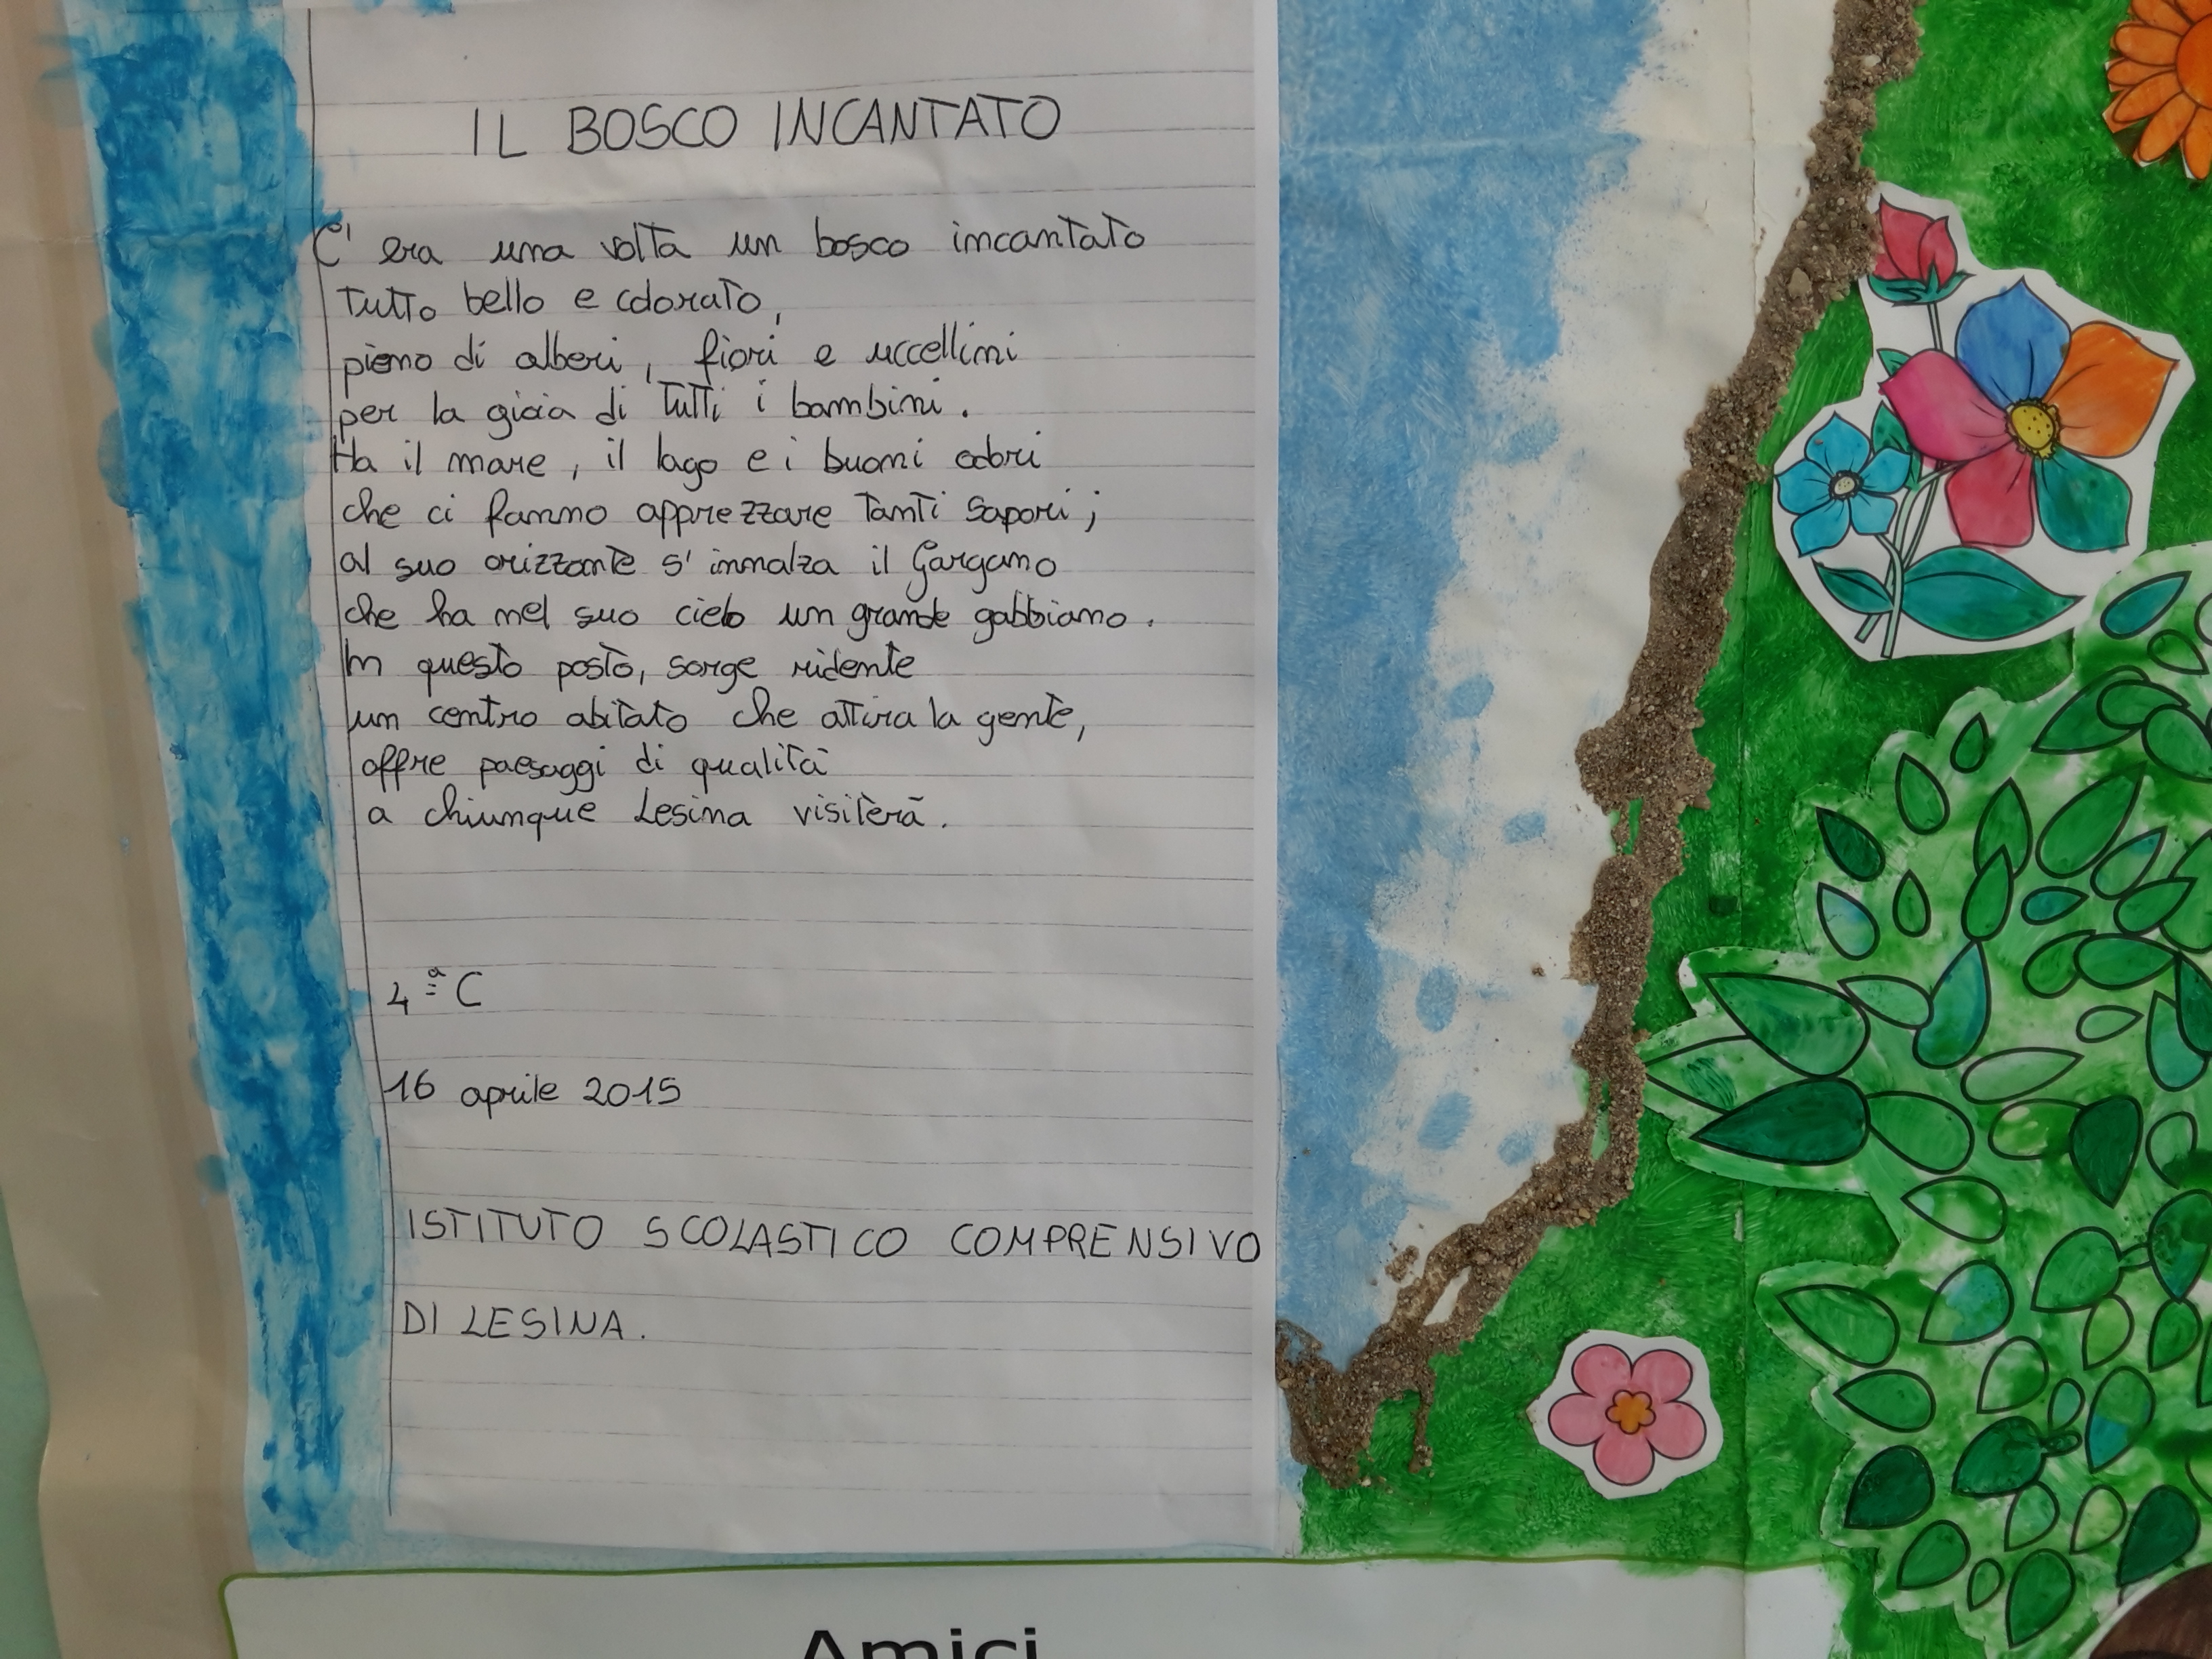 IL BOSCO INCANTATO
C'era una volta un bosco incantato
tutto bello e colorato,
pieno di alberi, fiori e uccellini
per la gioia di tutti i bambini.
Ha il mare, il lago e i buoni odori
che ci fanno apprezzare tanti sapori;
al suo orizzonte s'innalza il Gargano
che ha nel suo cielo un grande gabbiano.
In questo posto, sorge ridente
un centro abitato che attira la gente,
offre paesaggi di qualità
a chiunque Lesina visiterà.
4ª C
16 aprile 2015
ISTITUTO SCOLASTICO COMPRENSIVO
DI LESINA.
Amici